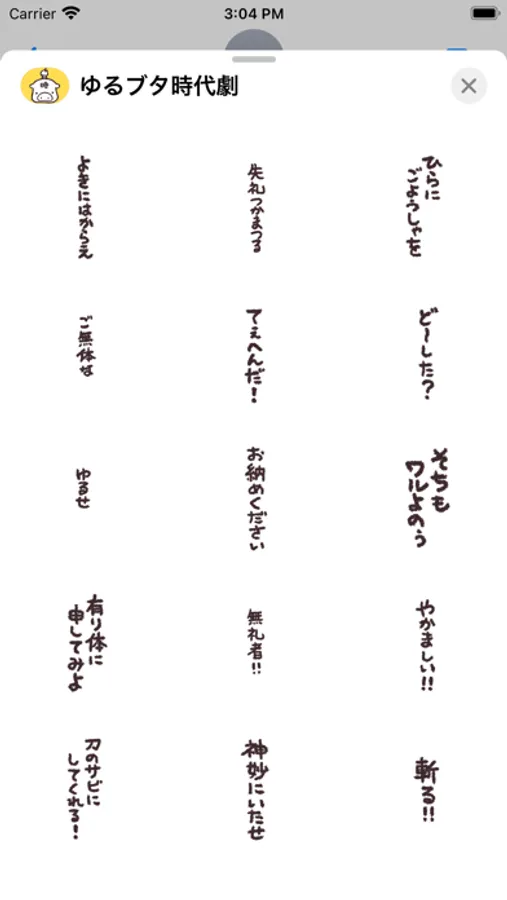 Carrier 3:04 PM
ゆるブタ時代劇
よきにはからえ
失礼つかまつる
ひらに
ごようしゃを
ご無体な
てぇへんだ!
ど〜した?
ゆるせ
お納めください
そちも
ワルよのう
有り体に
申してみよ
無礼者!!
やかましい!!
刀のサビに
してくれる!
神妙にいたせ
斬る!!